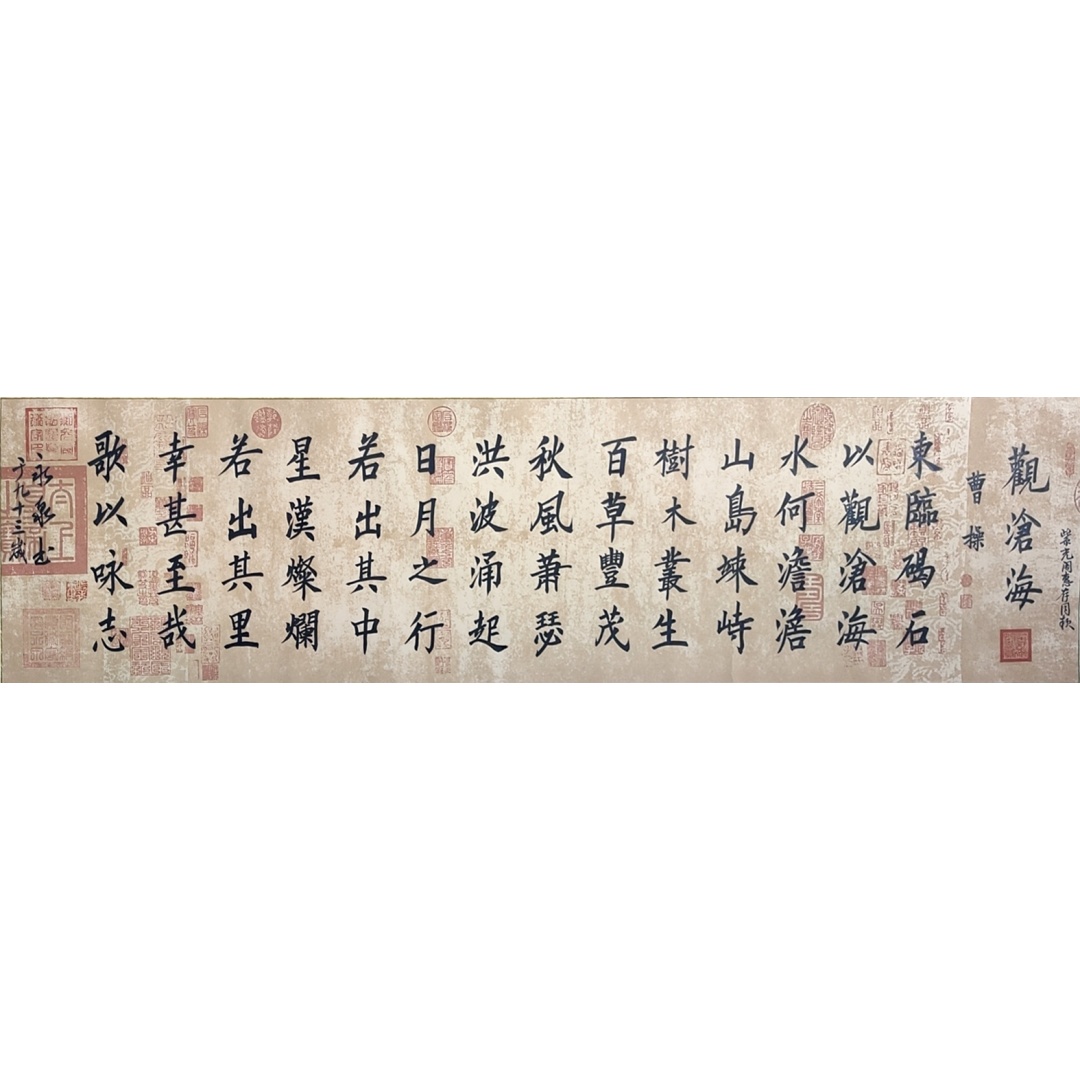 觀滄海
曹操
東臨碣石
以觀滄海
水何澹澹
山島竦峙
樹木叢生
百草豐茂
秋風蕭瑟
洪波涌起
日月之行
若出其中
星漢燦爛
若出其里
幸甚至哉
歌以咏志
永泉书
于九十三歲